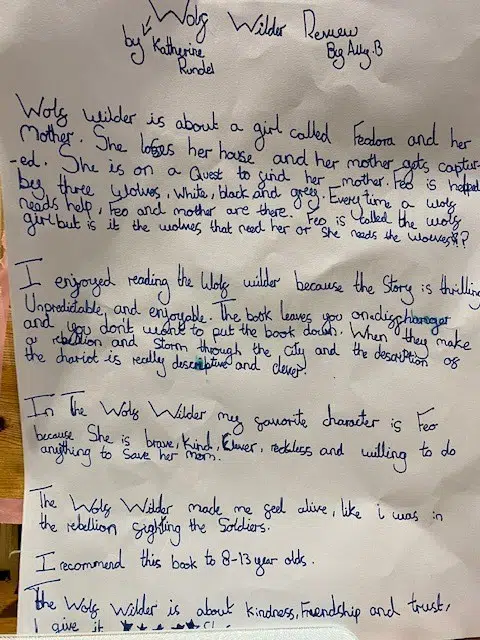 Wolf Wilder Review
by Katherine Rundel
By Ally.B
Wolf Wilder is about a girl called Feodora and her
Mother. She loses her house and her mother gets captur-
-ed. She is on a Quest to find her mother. Feo is helped
by three wolves, white, black and grey. Every time a wolf
needs help, Feo and mother are there. Feo is called the wolf
girl but is it the wolves that need her or she needs the wolves?
I enjoyed reading the Wolf wilder because the Story is thrilling
Unpredictable, and enjoyable. The book leaves you on a
and you don't want to put the book down. When they make
a rebellion and Storm through the city and the description of
the chariot is really descriptive and clever.
In The Wolf Wilder my favorite character is Feo
because She is brave, kind, clever, reckless and willing to do
anything to save her mom.
The Wolf Wilder made me feel alive, like i was in
the rebellion fighting the Soldiers.
I recommend this book to 8-13 year olds.
The Wolf Wilder is about kindness, Friendship and trust,
I give it